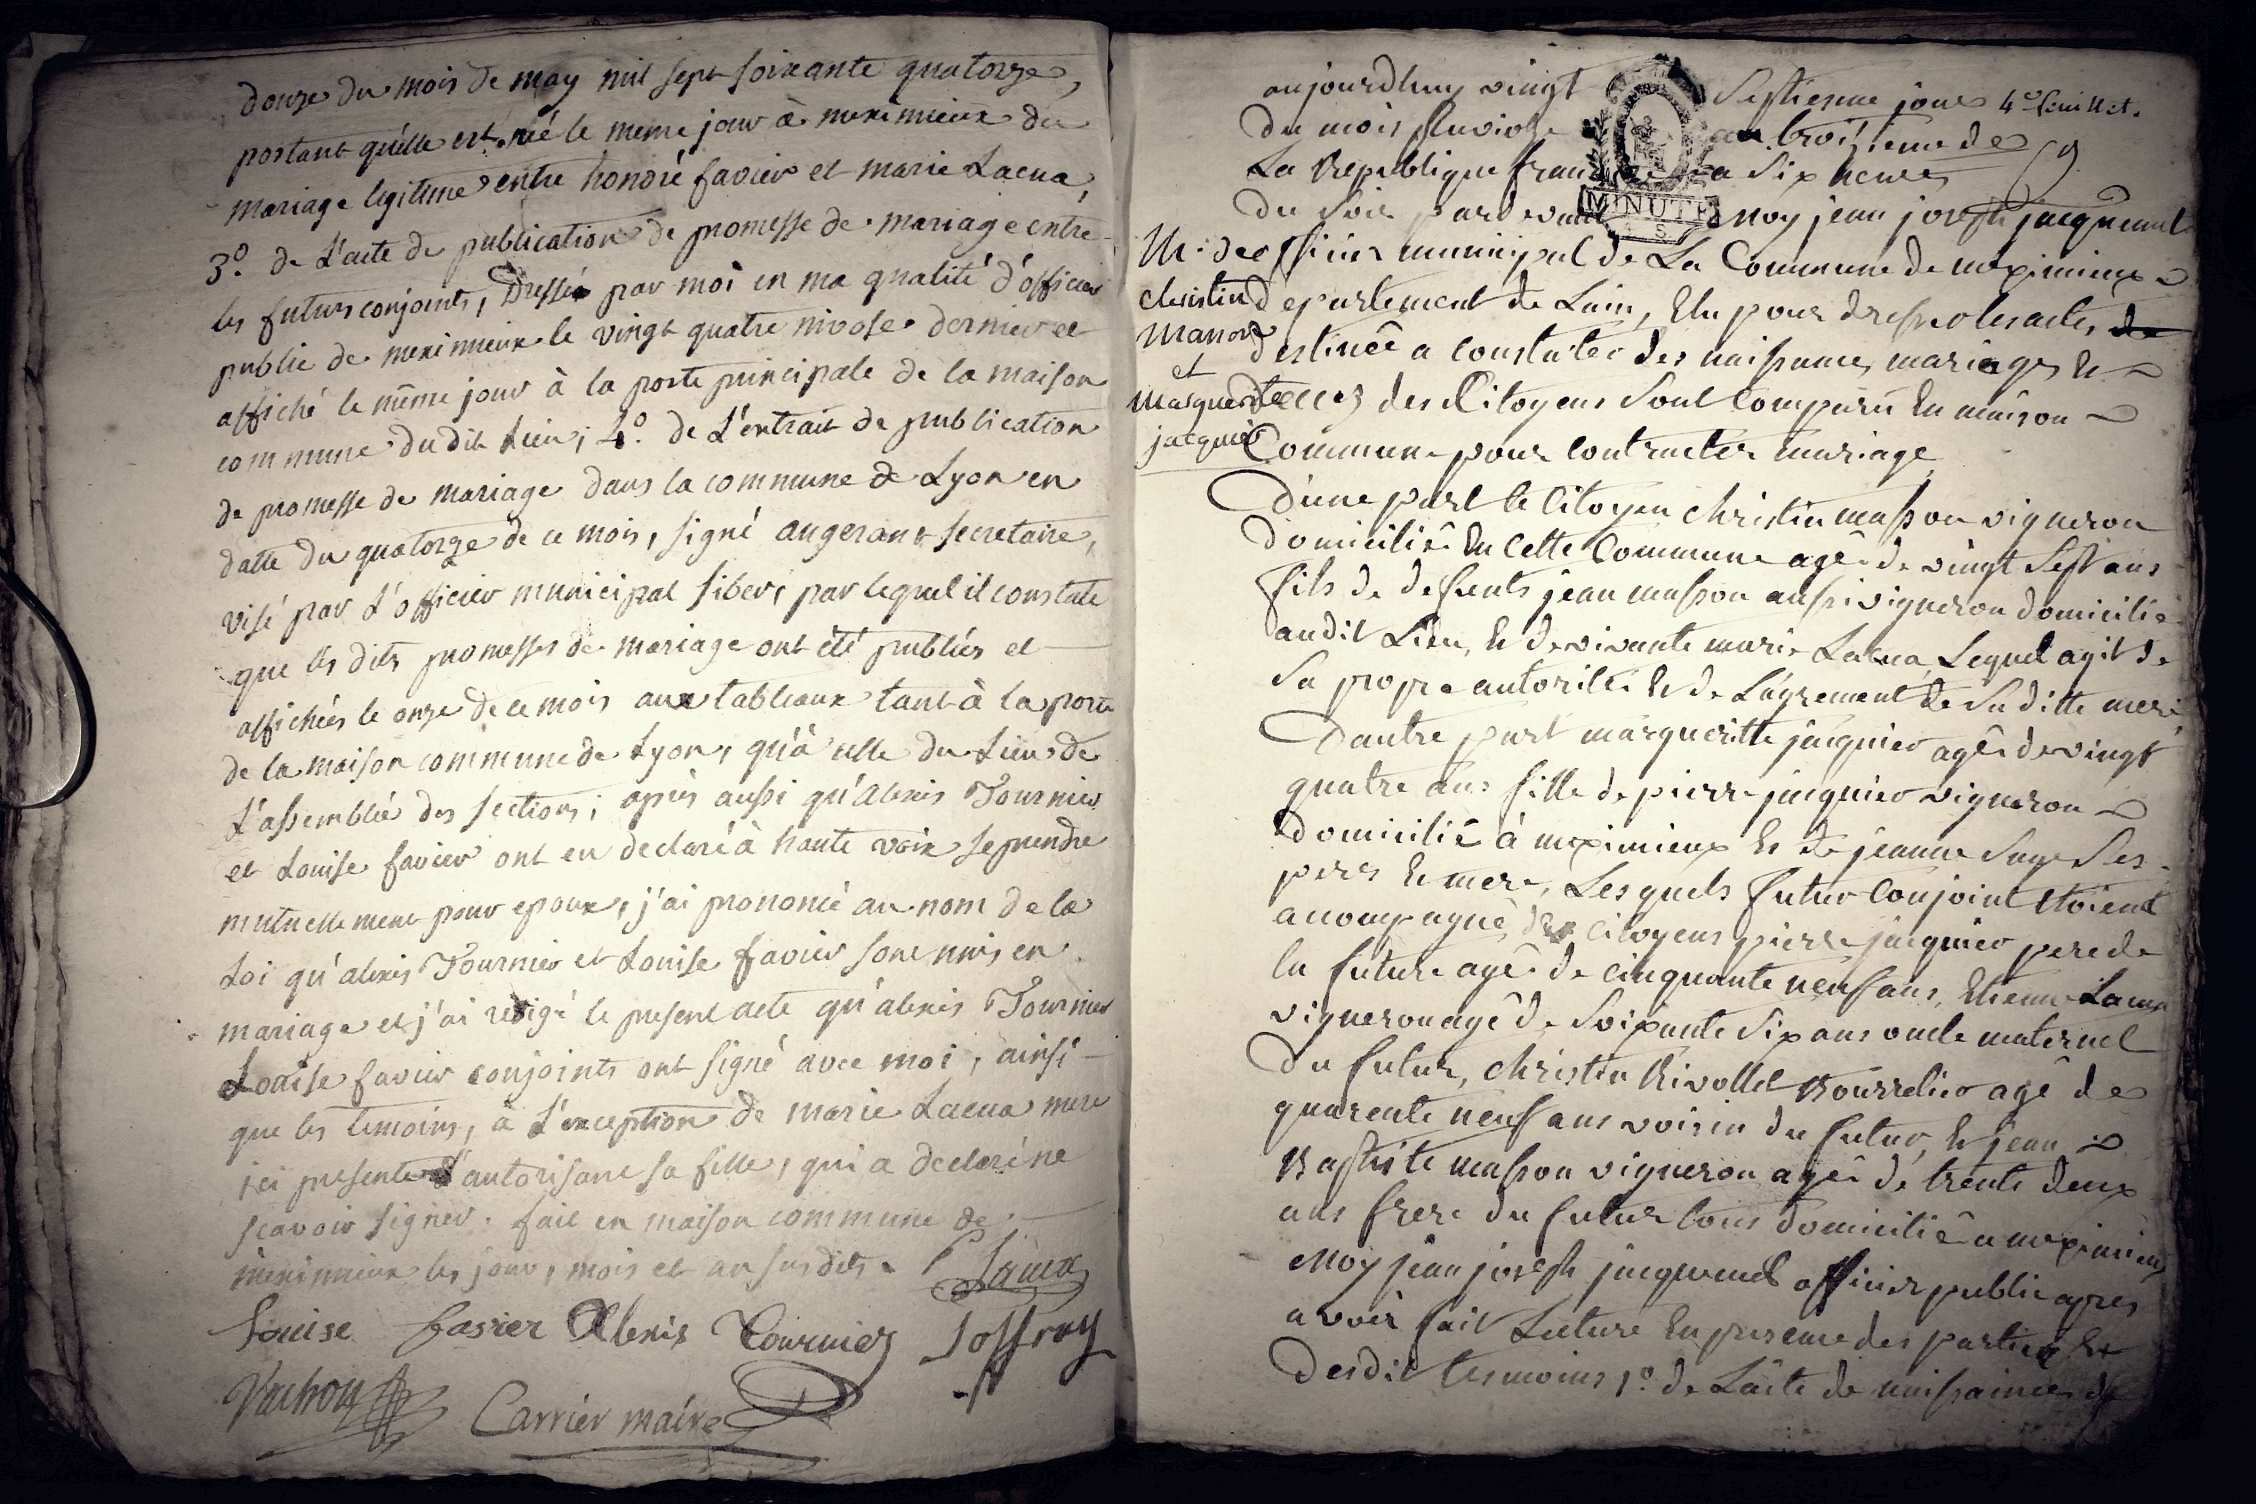 douze du mois de may mil sept soixante quatorze,
portant qu'elle est née le meme jour à meximieux du
mariage legitime entre honoré favier et marie Lacua,
3.º de L'acte de publication de promesse de mariage entre
les futurs conjoints, Dressée par moi en ma qualité d'officier
public de meximieux le vingt quatre nivose dernier et
affiché le même jour à la porte principale de la maison
commune dudit Lieu; 4.º de L'extrait de publication
de promesse de mariage dans la commune de Lyon en
datte du quatorze de ce mois, signé augerant secretaire,
visé par L'officier municipal siber, par lequel il constate
que les dits promesses de mariage ont été publiés et
affichées le onze de ce mois aux tableaux tant à la porte
de la maison commune de Lyon, qu'à celle du Lieu de
L'assemblée des sections; après aussi qu'alexis Tournier
et Louise favier ont eu declaré à haute voix se prendre
mutuellement pour epoux, j'ai prononcé au nom de la
Loi qu'alexis Tournier et Louise favier sont unis en
mariage et j'ai redigé le present acte qu'alexis Tournier
Louise favier conjoints ont signé avec moi, ainsi
que les temoins, à L'exception de marie Lacua mere
ici presente d'autorisant sa fille, qui a declaré ne
scavoir signer. fait en maison commune de
meximieux les jour, mois et an susdits.
Lacua
Louise favier Alexis Tournier Joffray
Vuchon
Carrier maire
4e feuillet.
aujourdhuy vingt Septiesme jour
du mois pluviose an troisieme de
La Republique française a Six heures
MINUTE
du Soir pardevant moy jean joseph jacquemet
officier municipal de La Commune de meximieux
departement de Lain, Elu pour dresser les actes de
destinée a constater des naissances, mariages et
deces des Citoyens Sont Comparu En maison
Commune pour contracter mariage
M. de
christin
masson
et
marguerite
jacquier
D'une part le Citoyen christin masson vigneron
domicilié En cette Commune agé de vingt Sept ans
fils de defunts jean masson aussi vigneron domicilié
audit Lieu, et de vivante marie Lacua, Lequel agit de
Sa propre autorité et de Lagrement de Sa ditte mere
Dautre part margueritte jacquier agée de vingt
quatre ans fille de pierre jacquier vigneron
domicilié à meximieux et de jeanne Suge Ses
pere et mere, Lesquels futur Conjoint Etoient
accompagné des citoyens pierre jacquier pere de
la future agé de cinquante neuf ans, Etienne Lacua
vigneron agé de Soixante Six ans oncle maternel
du futur, christin Rivollet Bourrelier agé de
quarente neuf ans voisin du futur, et jean
Baptiste masson vigneron agé de trente deux
ans frere du futur tous domicilié a meximieux
moy jean joseph jacquemet officier public apres
avoir fait Lecture En presence des parties Et
desdit temoins 1.º de Lacte de naissance de